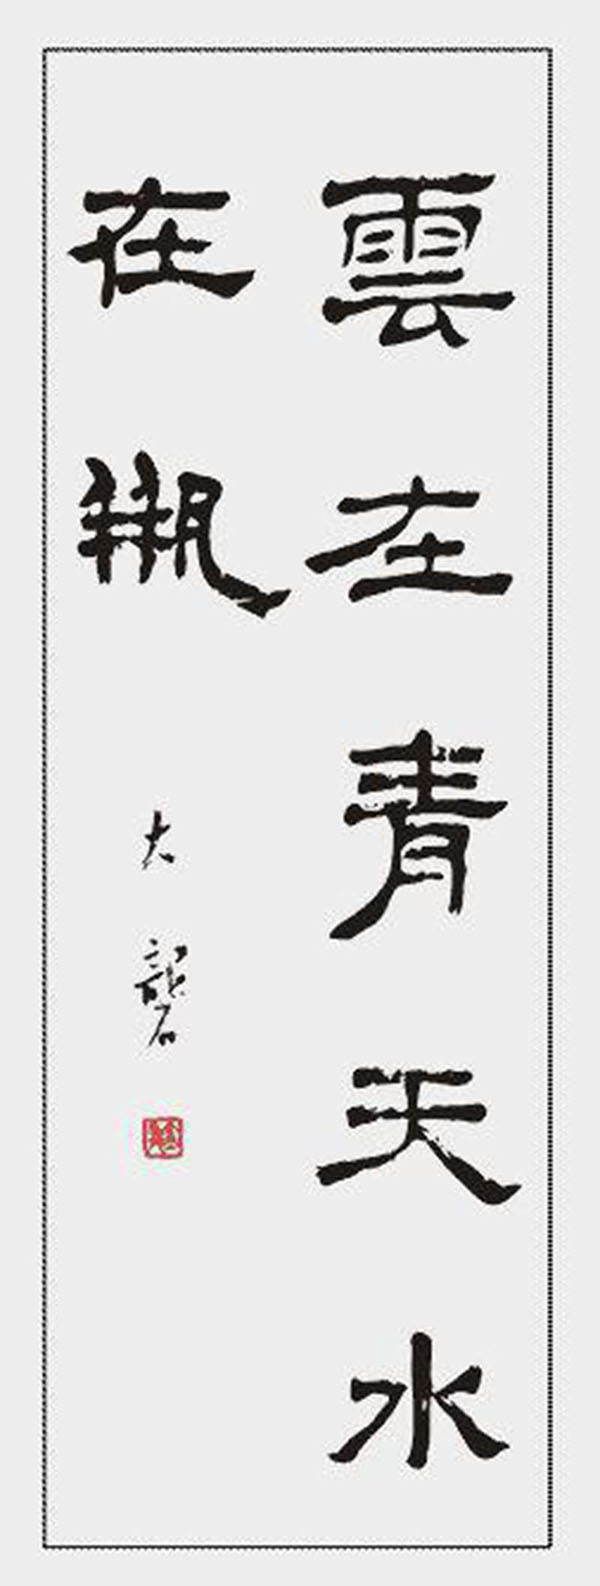 雲在青天水
在瓶
大龍石